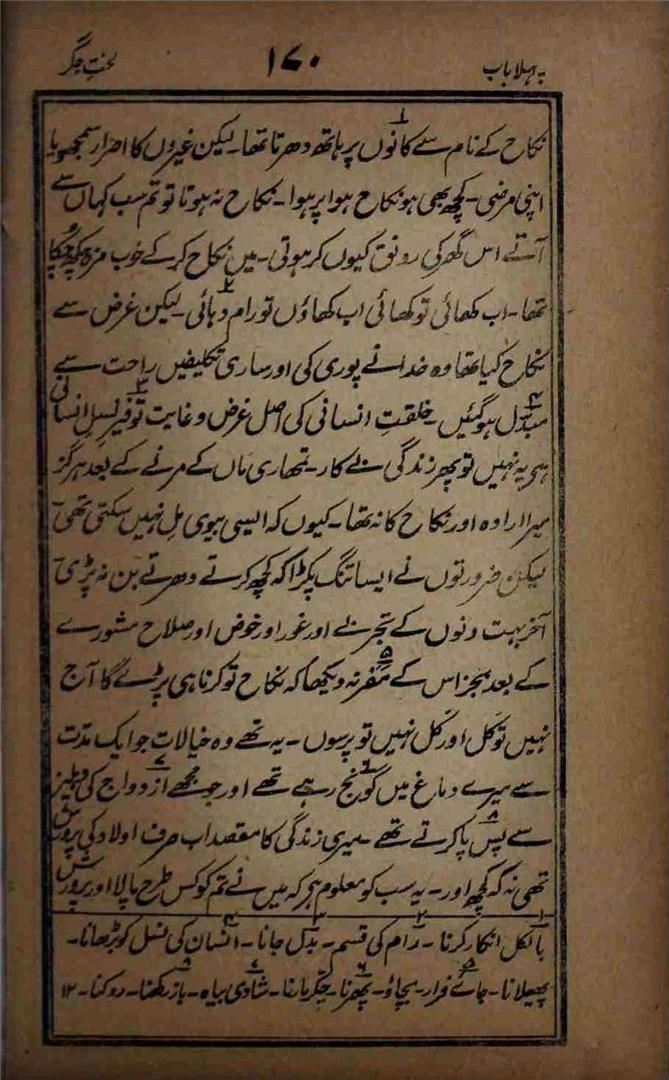 پہلا باب ۱۷۰ لختِ جگر
نکاح کے نام سے کانوں پر ہاتھ دھرتا تھا۔ لیکن غیروں کا اصرار سمجھو یا
اپنی مرضی۔ کچھ بھی ہو نکاح ہوا پر ہوا۔ نکاح نہ ہوتا تو تم سب کہاں سے
آتے اس گھر کی رونق کیوں کر ہوتی۔ میں نکاح کر کے خوب مزہ چکھ چکا
تھا۔ اب کھائی تو کھائی اب کھاؤں تو رام دہائی۔ لیکن غرض سے
نکاح کیا تھا وہ خدا نے پوری کی اور ساری تکلیفیں راحت سے
مبدّل ہوگئیں۔ خلقتِ انسانی کی اصل غرض و غایت توفیرِ نسلِ انسانی
ہی یہ نہیں تو پھر زندگی بے کار۔ تمھاری ماں کے مرنے کے بعد ہرگز
میرا ارادہ اور نکاح کا نہ تھا۔ کیوں کہ ایسی بیوی مل نہیں سکتی تھی
لیکن ضرورتوں نے ایسا تنگ پکڑا کہ کچھ کرتے دھرتے بن نہ پڑی
آخر بہت دنوں کے تجربے اور غور اور خوض اور صلاح مشورے
کے بعد بجز اس کے مفر نہ دیکھا کہ نکاح تو کرنا ہی پڑے گا آج
نہیں تو کل اور کل نہیں تو پرسوں۔ یہ تھے وہ خیالات جو ایک مدت
سے میرے دماغ میں گونج رہے تھے اور جو مجھے ازدواج کی دہلیز
سے پس پا کرتے تھے۔ میری زندگی کا مقصد اب صرف اولاد کی پرورش
تھی نہ کہ کچھ اور۔ یہ سب کو معلوم ہی کہ میں نے تم کو کس طرح پالا اور پرورش
۱ بالکل انکار کرنا۔ ۲ رام کی قسم۔ ۳ بدل جانا۔ ۴ انسان کی نسل کو بڑھانا۔
پھیلانا۔ ۵ جائے فرار۔ بچاؤ۔ ۶ پھرنا۔ چکر مارنا۔ ۷ شادی بیاہ۔ ۸ باز رکھنا۔ روکنا۔ ۱۲